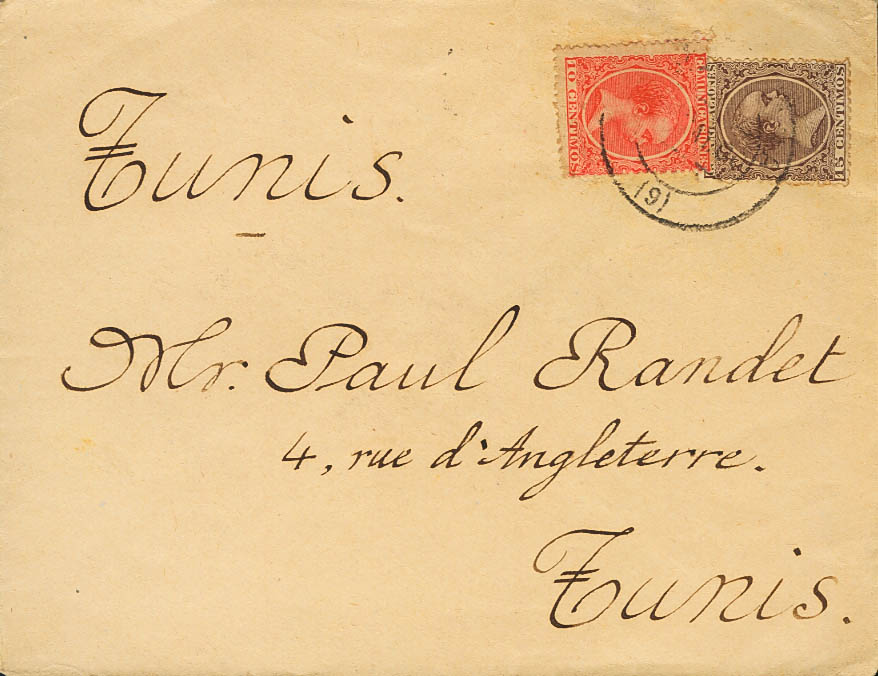 Tunis.
COMUNICACIONES
10 CENTIMOS
15 CENTIMOS
(9)
Mr. Paul Randet
4, rue d'Angleterre.
Tunis.